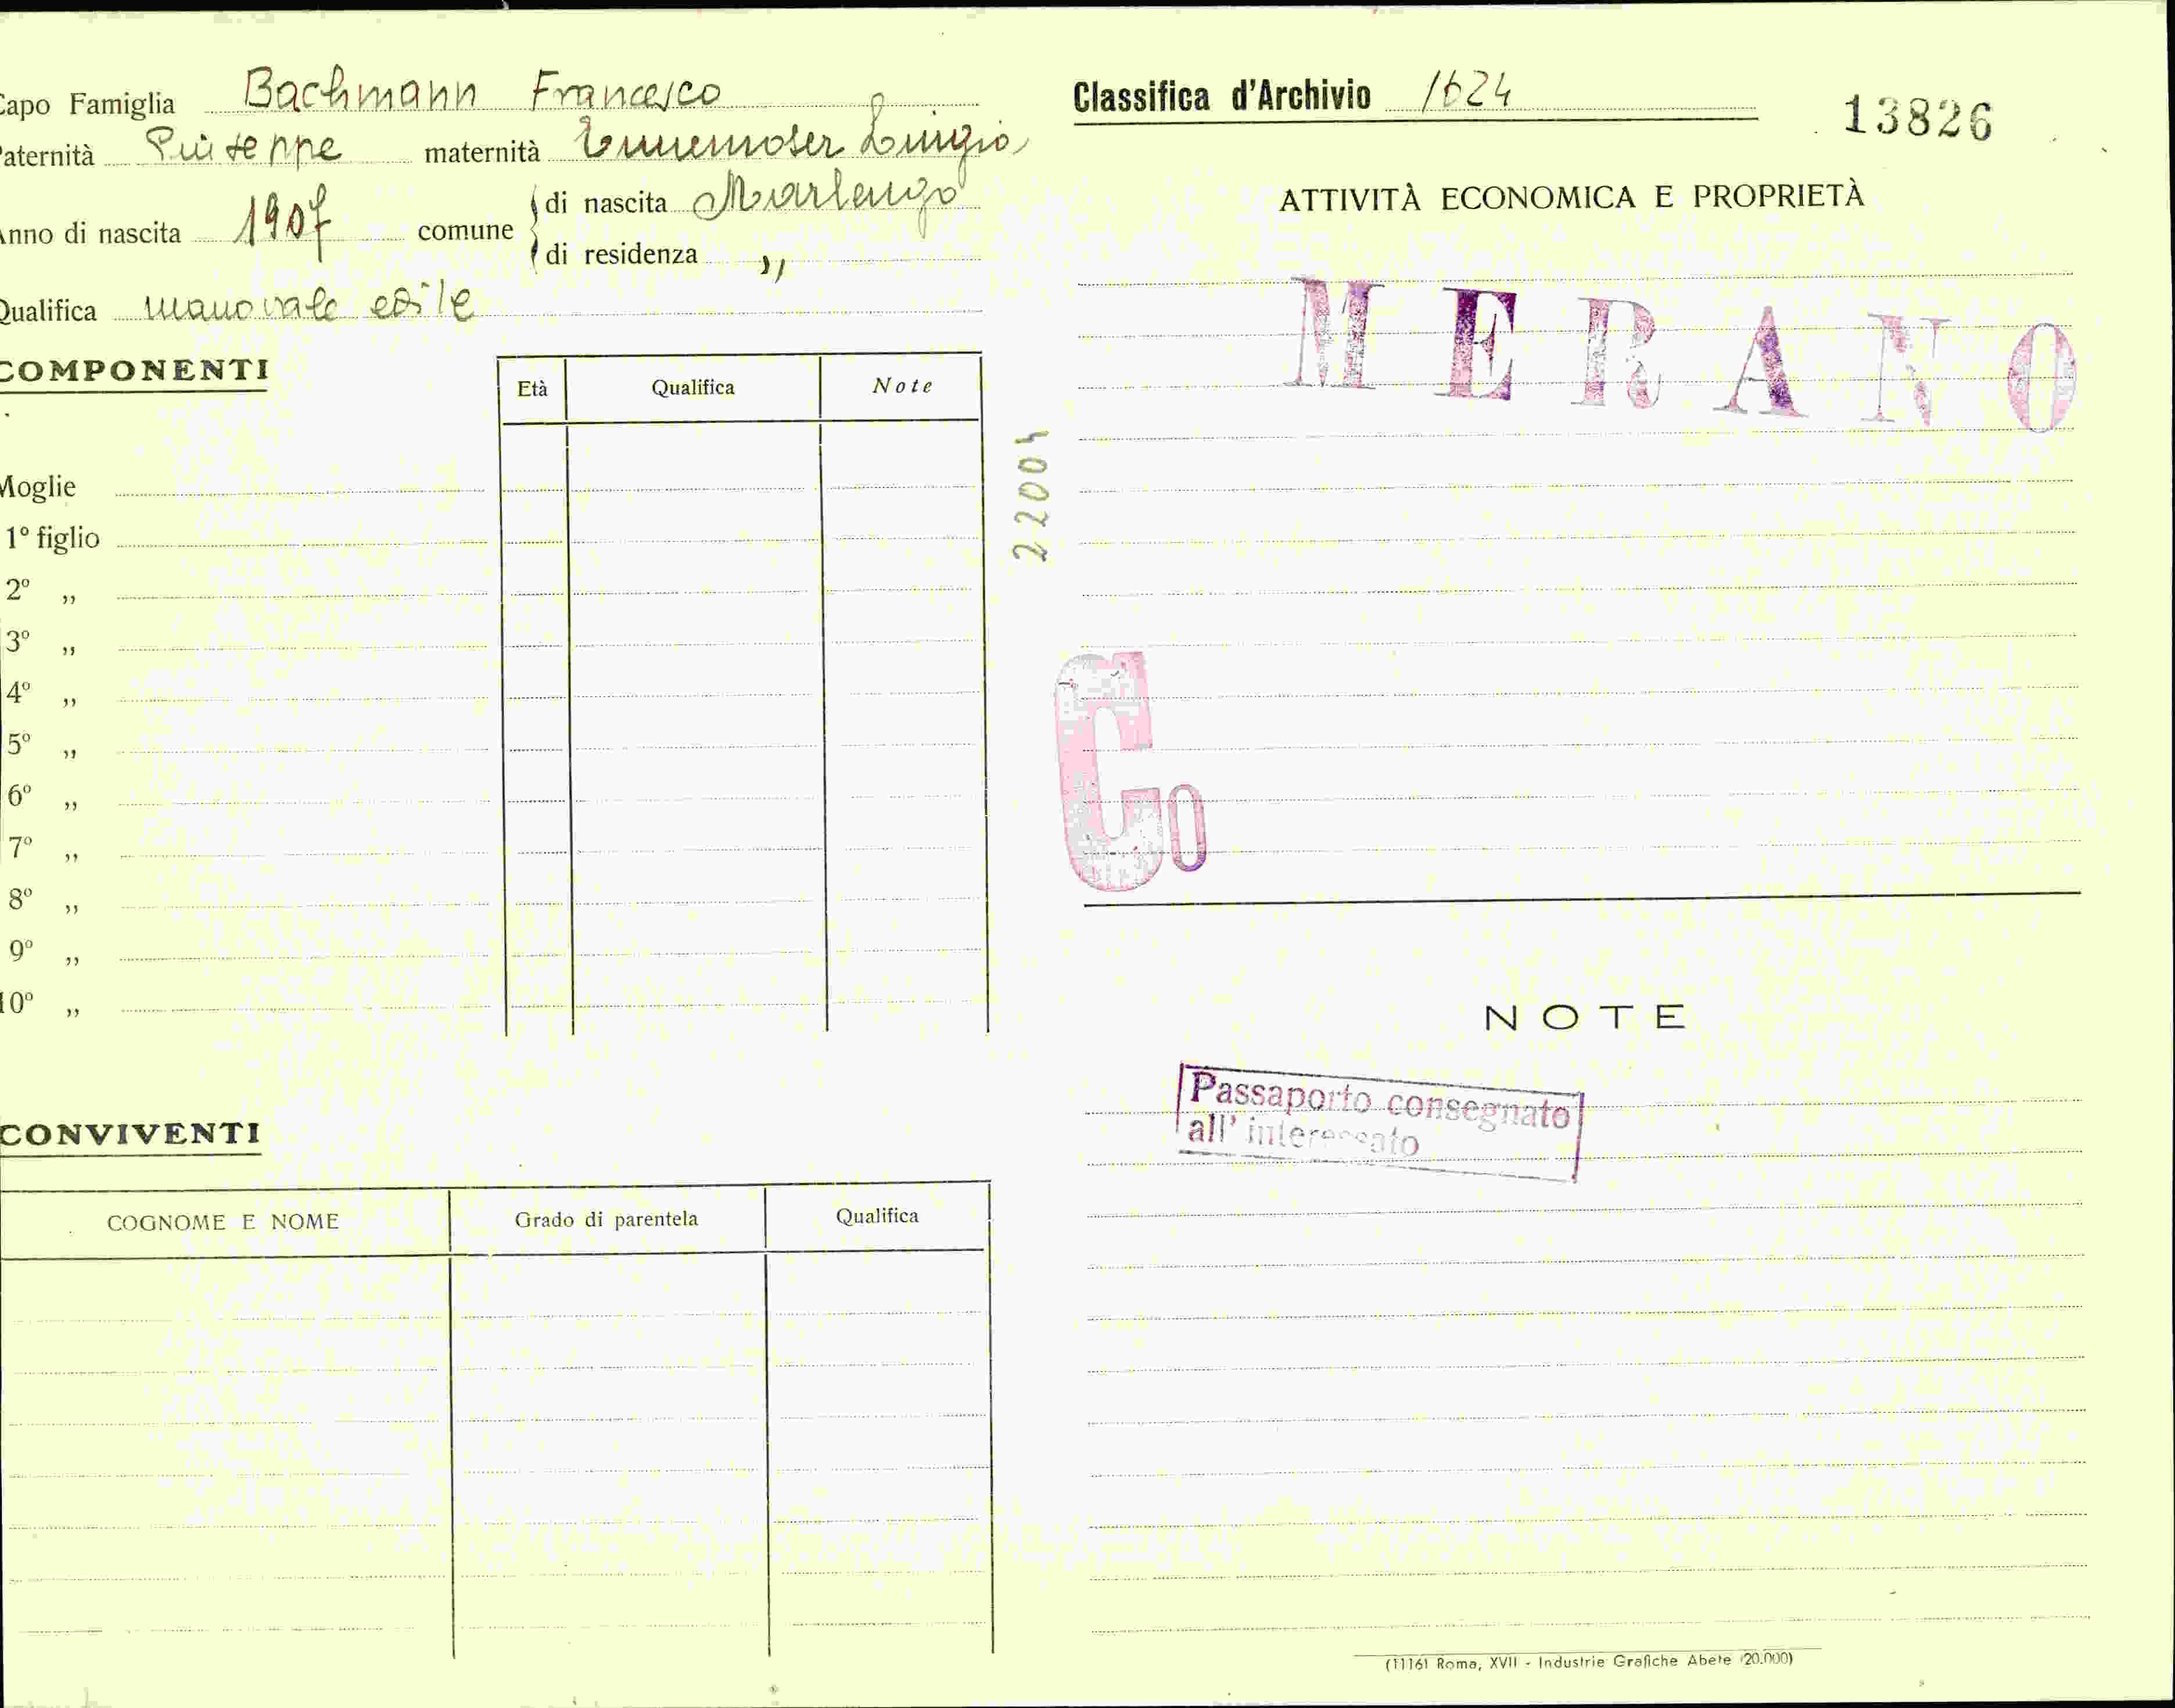 Capo Famiglia Bachmann Francesco
Paternità Giuseppe maternità Ennemoser Luigia
Anno di nascita 1907 comune di nascita Marlengo
di residenza „
Qualifica manovale edile
COMPONENTI
Età Qualifica Note
Moglie
1º figlio
2º „
3º „
4º „
5º „
6º „
7º „
8º „
9º „
10º „
CONVIVENTI
COGNOME E NOME Grado di parentela Qualifica
22004
Classifica d'Archivio 1624
13826
ATTIVITÀ ECONOMICA E PROPRIETÀ
MERANO
Co
NOTE
Passaporto consegnato
all' interessato
(11161 Roma, XVII - Industrie Grafiche Abete (20.000)